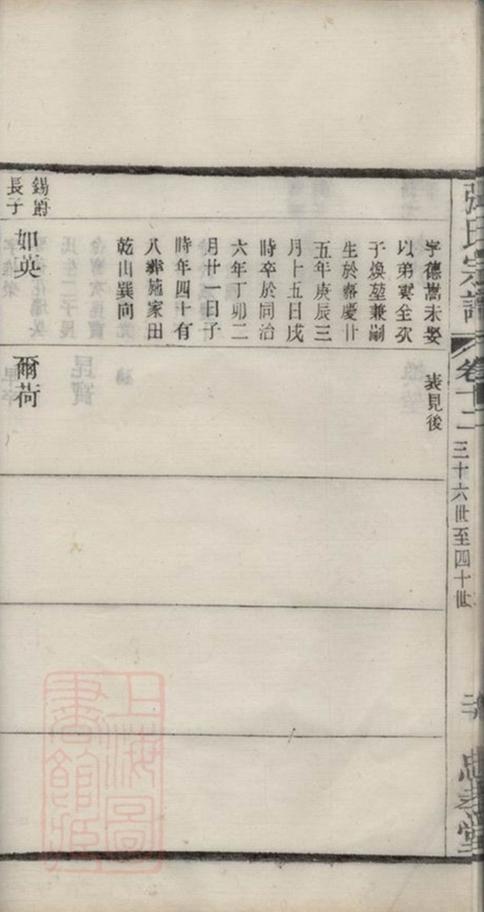 張氏宗譜
卷十二
三十六世至四十世
忠孝堂
字德嵩未娶
以弟寅全次
子煥堃兼嗣
生於嘉慶廿
五年庚辰三
月十五日戌
時卒於同治
六年丁卯二
月廿一日子
時年四十有
八葬施家田
乾山巽向
錫爵
長子
如英
表見後
爾荷
上海圖
書館藏